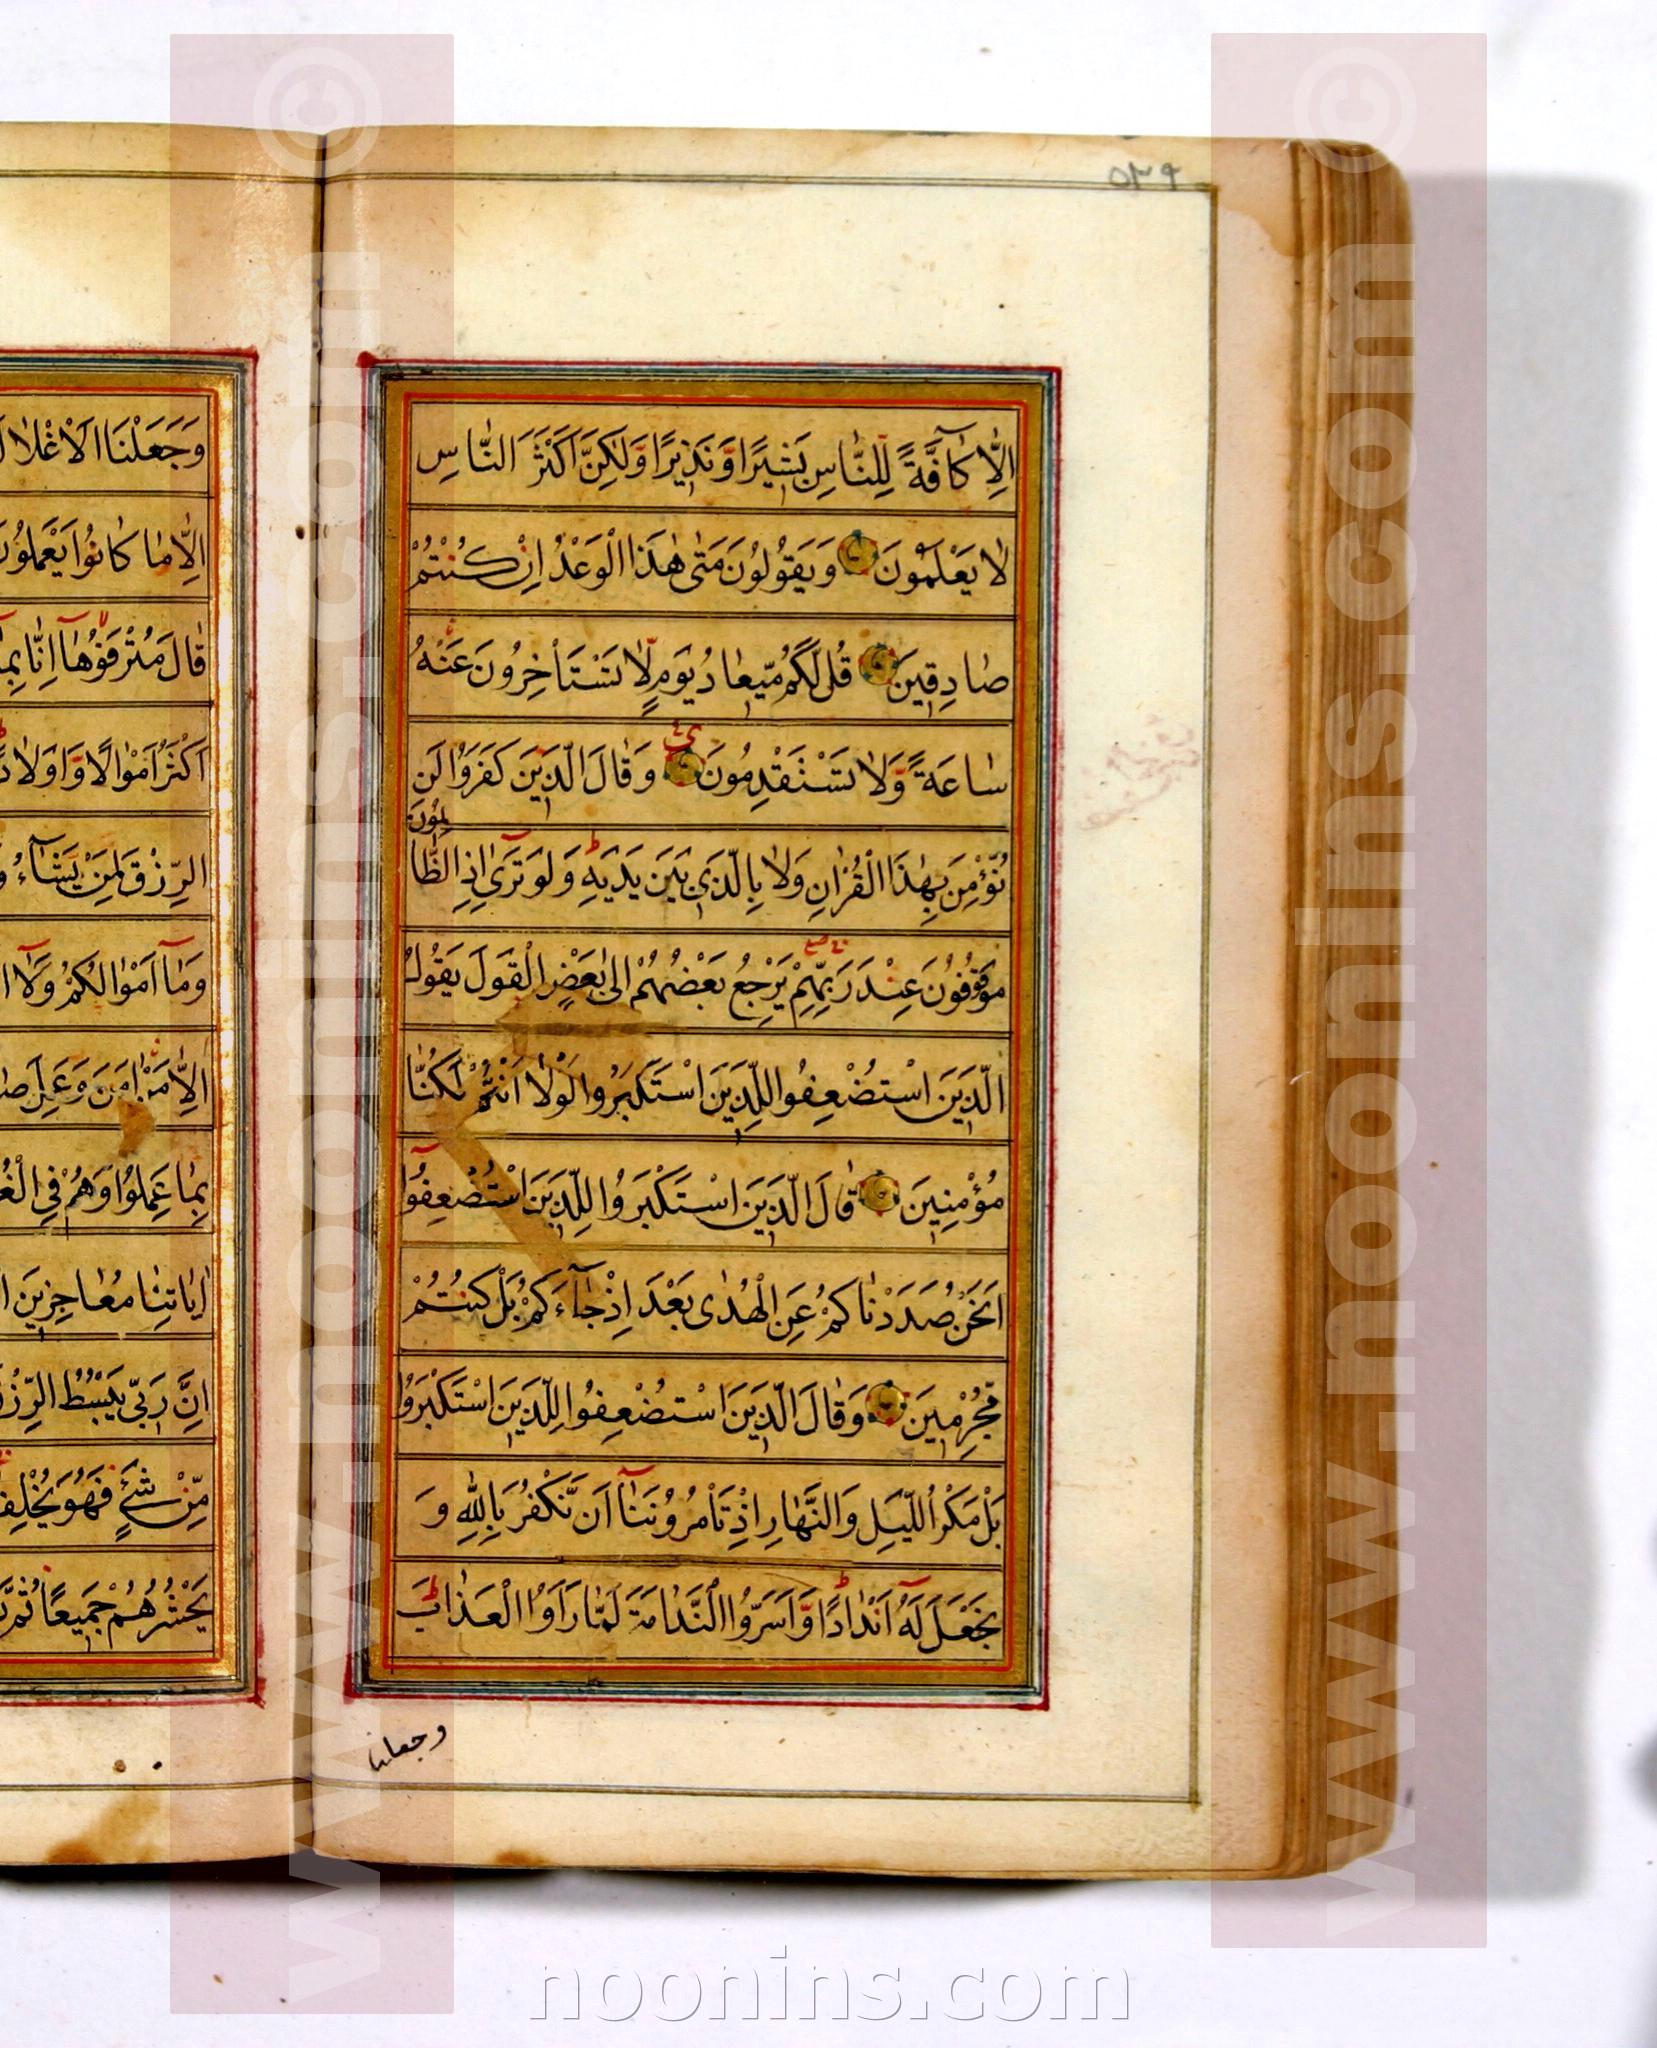 ۵۳۹
اِلّٰا كٰآفَّةً لِلنّٰاسِ بَشِيرًا وَّنَذِيرًا وَّلٰكِنَّ اَكْثَرَ النّٰاسِ
لٰا يَعْلَمُونَ وَيَقُولُونَ مَتٰى هٰذَا الْوَعْدُ اِنْ كُنْتُمْ
صٰادِقِينَ قُلْ لَكُمْ مّيعٰادُ يَوْمٍ لّٰا تَسْتَأْخِرُونَ عَنْهُ
سٰاعَةً وَّلٰا تَسْتَقْدِمُونَ وَقٰالَ الَّذِينَ كَفَرُوا لَنْ
نُؤْمِنَ بِهٰذَا الْقُرْاٰنِ وَلٰا بِالَّذِي بَيْنَ يَدَيْهِ وَلَوْ تَرٰى اِذِ الظّٰالِمُونَ
مَوْقُوفُونَ عِنْدَ رَبِّهِمْ يَرْجِعُ بَعْضُهُمْ اِلٰى بَعْضٍ الْقَوْلَ يَقُولُ
الَّذِينَ اسْتُضْعِفُوا لِلَّذِينَ اسْتَكْبَرُوا لَوْلٰا اَنْتُمْ لَكُنّٰا
مُؤْمِنِينَ قٰالَ الَّذِينَ اسْتَكْبَرُوا لِلَّذِينَ اسْتُضْعِفُوٓا
اَنَحْنُ صَدَدْنٰاكُمْ عَنِ الْهُدٰى بَعْدَ اِذْ جٰآءَكُمْ بَلْ كُنْتُمْ
مّجْرِمِينَ وَقٰالَ الَّذِينَ اسْتُضْعِفُوا لِلَّذِينَ اسْتَكْبَرُوا
بَلْ مَكْرُ اللَّيْلِ وَالنَّهٰارِ اِذْ تَأْمُرُونَنٰآ اَنْ نَّكْفُرَ بِاللّٰهِ وَ
نَجْعَلَ لَهُٓ اَنْدٰادًا وَّاَسَرُّوا النَّدٰامَةَ لَمّٰا رَاَوُا الْعَذٰابَ
وجعلنا
وَجَعَلْنَا الْاَغْلٰالَ
اِلّٰا مٰا كٰانُوا يَعْمَلُونَ
قٰالَ مُتْرَفُوهٰآ اِنّٰا بِمٰا
اَكْثَرُ اَمْوٰالًا وَّاَوْلٰادًا
الرِّزْقَ لِمَنْ يَّشٰآءُ
وَمٰآ اَمْوٰالُكُمْ وَلٰآ
اِلّٰا مَنْ اٰمَنَ وَعَمِلَ
بِمٰا عَمِلُوا وَهُمْ فِي
اٰيٰاتِنٰا مُعٰاجِزِينَ
اِنَّ رَبِّي يَبْسُطُ الرِّزْقَ
مِّنْ شَيْءٍ فَهُوَ يُخْلِفُهُ
يَحْشُرُهُمْ جَمِيعًا ثُمَّ
www.noonins.com ©
www.noonins.com ©
noonins.com